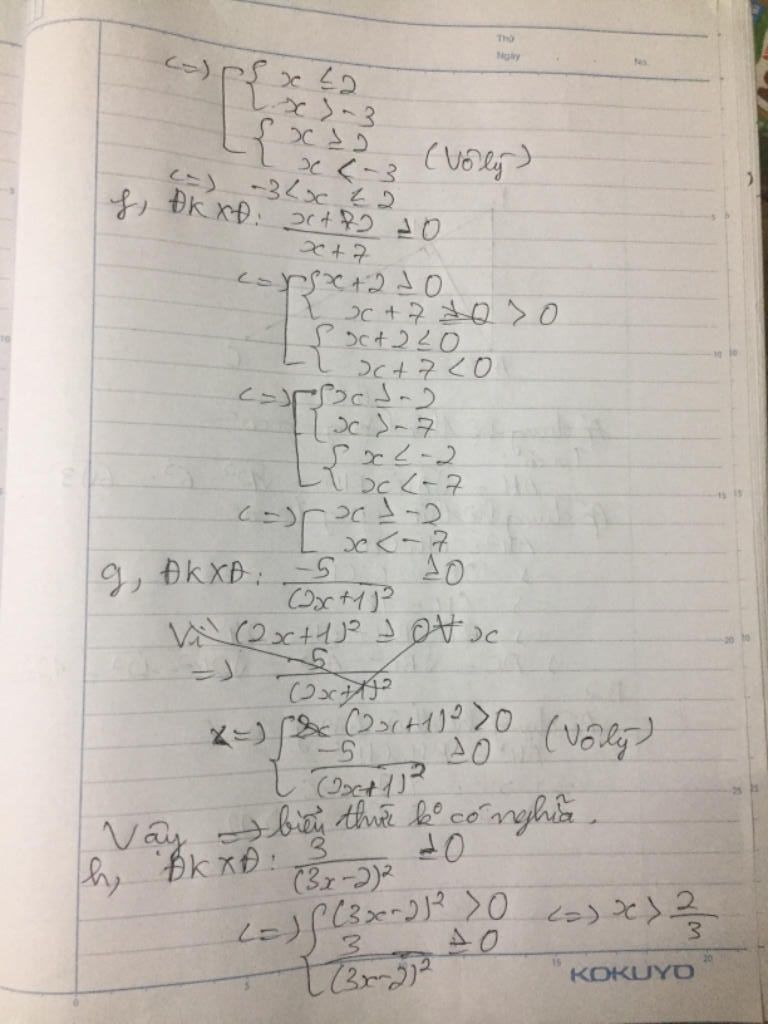 Thứ
Ngày No.
<=> [ { x ≤ 2
x > -3
{ x ≥ 2
x < -3 (Vô lý)
<=> -3 < x ≤ 2
f, ĐKXĐ: x+2 / x+7 ≥ 0
<=> [ { x+2 ≥ 0
x+7 ≥ 0 > 0
{ x+2 ≤ 0
x+7 < 0
<=> [ { x ≥ -2
x > -7
{ x ≤ -2
x < -7
<=> [ x ≥ -2
x < -7
g, ĐKXĐ: -5 / (2x+1)² ≥ 0
Vì (2x+1)² ≥ 0 ∀ x
=> -5 / (2x+1)²
<=> { (2x+1)² > 0
-5 / (2x+1)² ≥ 0 (Vô lý)
Vậy => biểu thức k° có nghĩa.
h, ĐKXĐ: 3 / (3x-2)² ≥ 0
<=> { (3x-2)² > 0 <=> x > 2/3
3 / (3x-2)² ≥ 0
KOKUYO